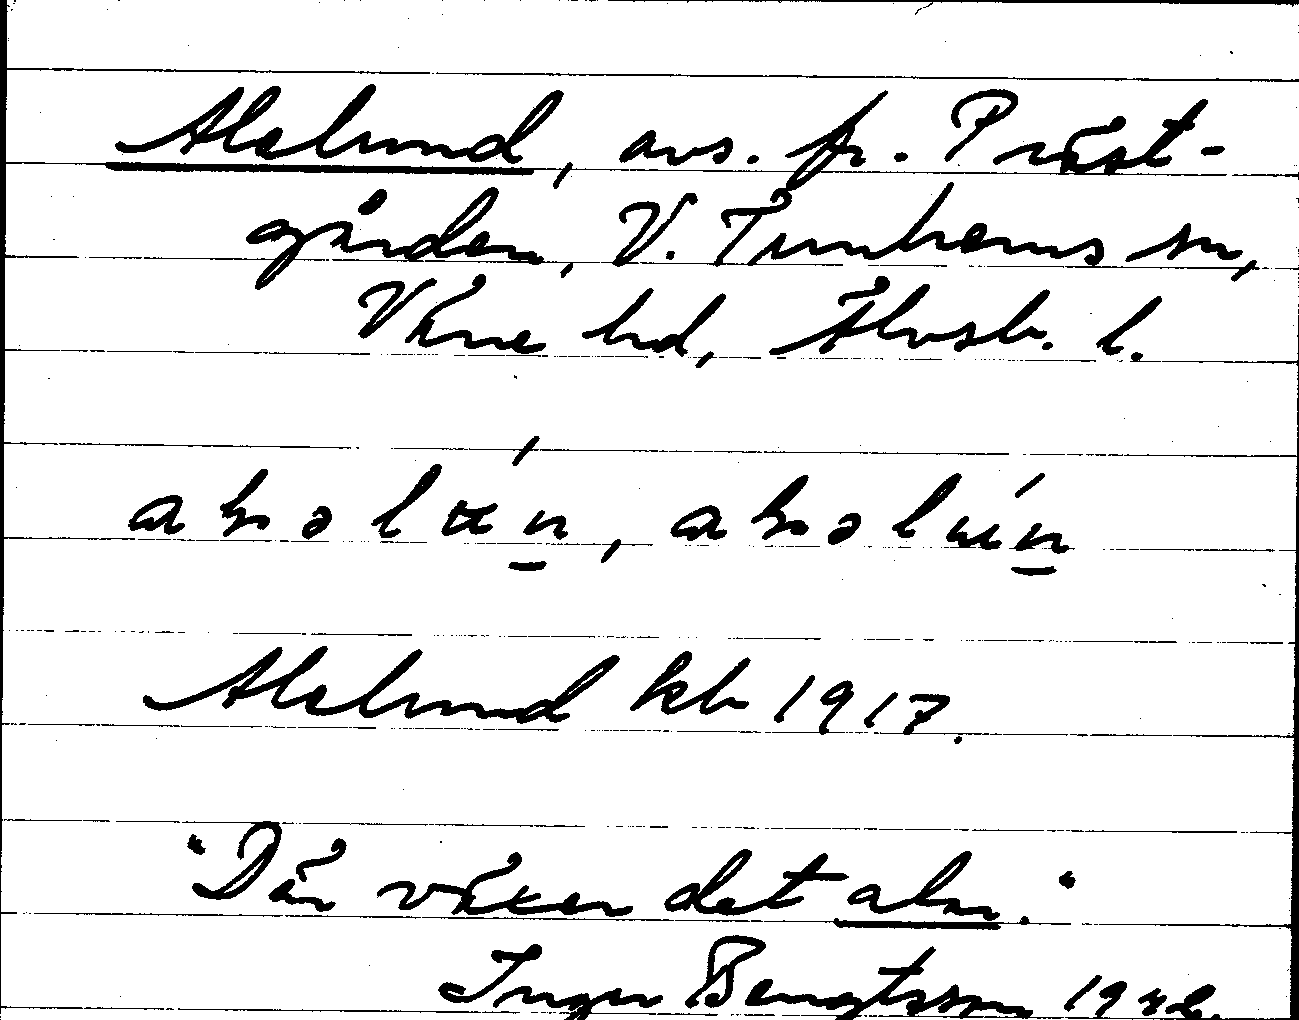 Alelund, avs. fr. Präst-
gården, V. Tunhems sn,
Väne hd, Älvsb. l.
Alelund kb 1917.
"Där växer det alar."
Inger Bengtsson 1942.